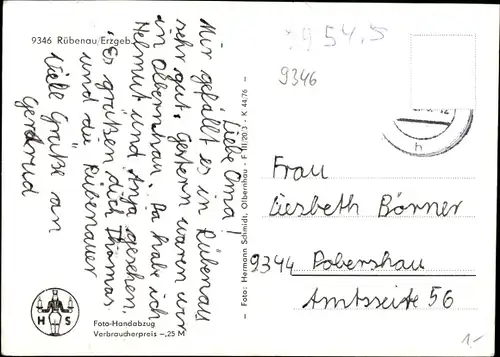 9346 Rübenau/Erzgeb.
Liebe Oma!
Mir gefällt es in Rübenau
sehr gut. Gestern waren wir
in Olbernhau. Da habe ich
Helmut und Anja gesehen.
Es grüßen dich Thomas
und die Rübenauer
Viele Grüße an
Gertrud
H S
Foto-Handabzug
Verbraucherpreis -,25 M
— Foto: Hermann Schmidt, Olbernhau - F III/20/3 - K 44/76 —
54,5
9346
h
Frau
Liesbeth Börner
9344 Pobershau
Amtsseite 56
1,-